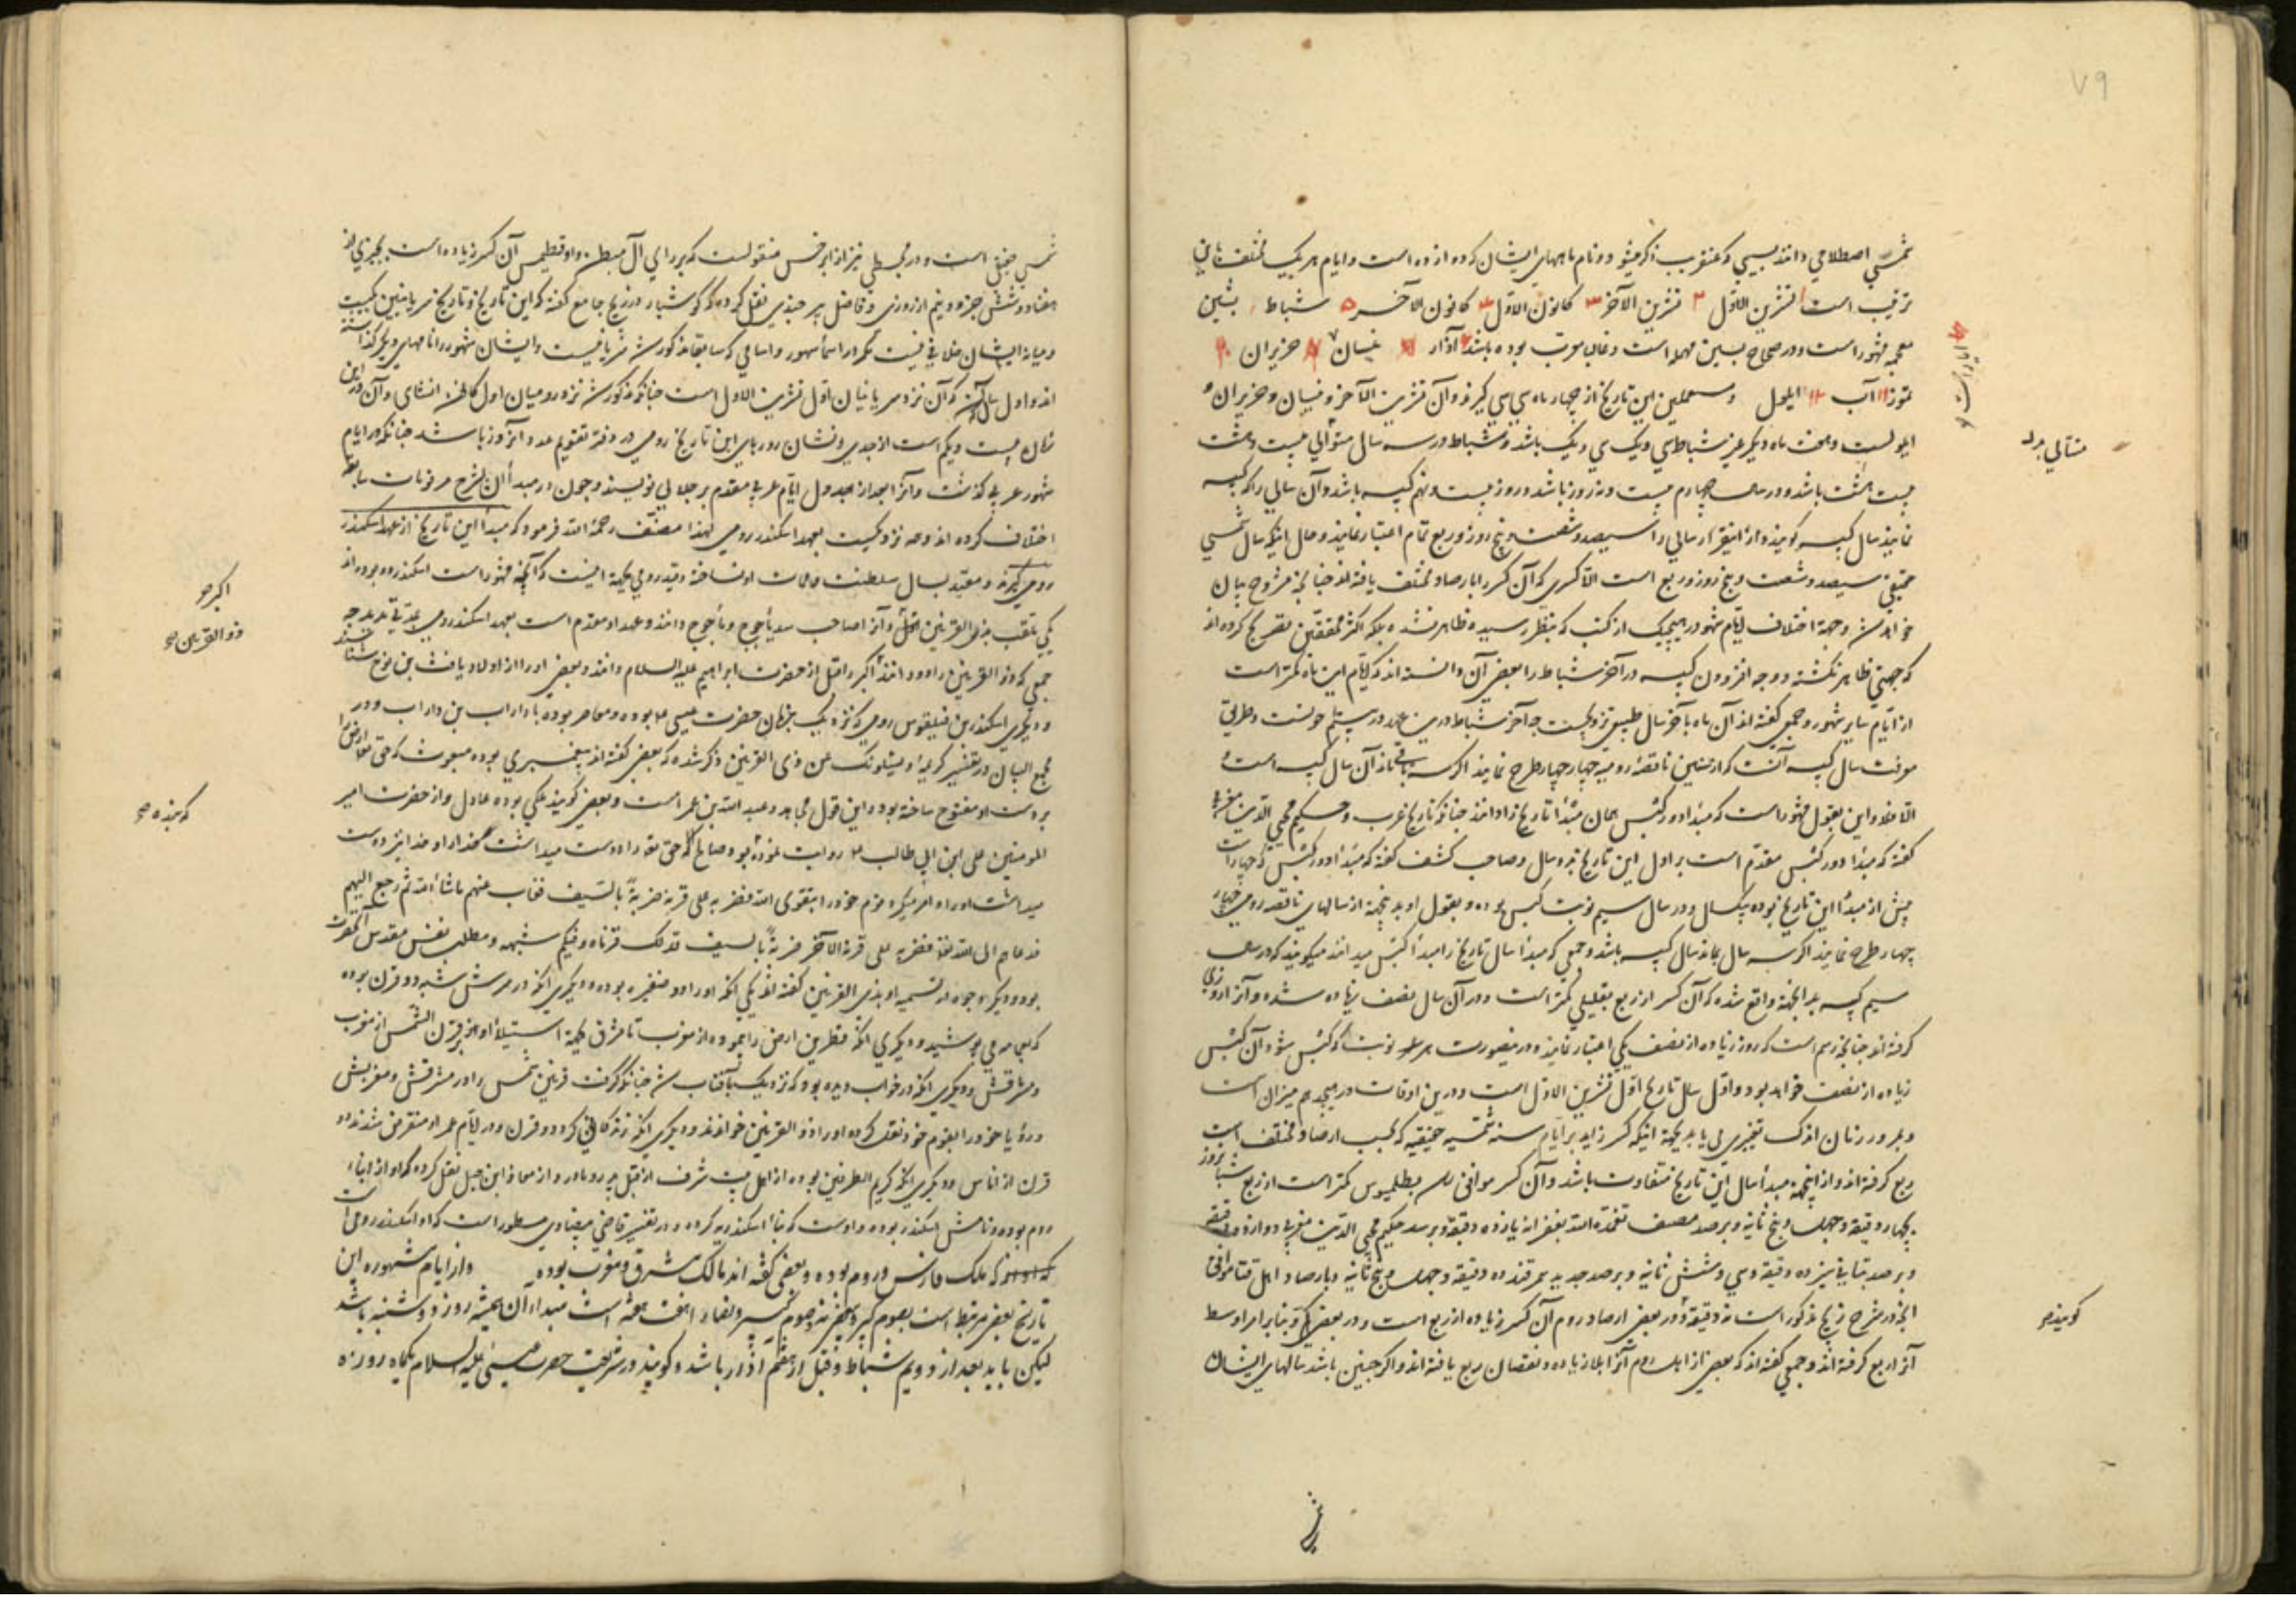 ۷۹
شمسی اصطلاحی دانند بسببی که عنقریب ذکر میشود و نام ماههای ایشان که دوازده است و ایام هر یک مختلف باین
ترتیب است تشرین الاول ۲ تشرین الآخر ۳ کانون الاول ۴ کانون الآخر ۵ شباط بشین
معجمه مشهور است و در صحاح بسین مهمله است و غالبا معرب بوده باشد آذار نیسان حزیران
تموز ۱۱ آب ۱۲ ایلول و مستعملین این تاریخ از چهار ماه سی سی گیرند و آن تشرین الآخر و نیسان و حزیران و
ایلولست و هفت ماه دیگر غیر شباط سی و یک سی و یک باشد و شباط در سه سال متوالی بیست و هشت
بیست هشت باشد و در سال چهارم بیست و نه روز باشد و روز بیست و نهم کبیسه باشد و آن سالی را که کبیسه
نمایند سال کبیسه گویند و از اینقرار سالی را سیصد و شصت و پنج روز و ربع تمام اعتبار نمایند و حال اینکه سال شمسی
حقیقی سیصد و شصت و پنج روز و ربع است الا کسری که آن کسر را بارصاد مختلف یافته اند چنانچه مشروح بیان
خواهد شد و جهة اختلاف ایام شهور در هیچیک از کتب که بنظر رسیده ظاهر نشده بلکه اکثر محققین تصریح کرده اند
که جهتی ظاهر نگشته و وجه افزودن کبیسه در آخر شباط را بعضی آن دانسته اند که ایام این ماه کمتر است
از ایام سایر شهور و جمعی گفته اند آن ماه بآخر سال طبیعی نزدیکست چه آخر شباط درین عهد در بیستم حوتست و طریق
معرفت سال کبیسه آنست که از سنین ناقصه رومیه چهار چهار طرح نمایند اگر سه باقی ماند آن سال کبیسه است و
الا فلا و این بقول مشهور است که مبدأ دور کبس همان مبدأ تاریخ را دانند چنانکه تاریخ عرب و حکیم محیی الدین مغربی
گفته که مبدأ دور کبس مقدم است بر اول این تاریخ بدو سال و صاحب کشف گفته که مبدأ دور کبس که چهار است
پیش از مبدأ این تاریخ بوده بیکسال و در سال سیم نوبت کبس بوده و بقول او بدینجهة از سالهای ناقصه رومی چهار
چهار طرح نمایند اگر سه سال بماند سال کبیسه باشد و جمعی که مبدأ سال تاریخ را مبدأ کبس میدانند میگویند که در سال
سیم کبیسه بدانجهة واقع شده که آن کسر از ربع بقلیلی کمتر است و در آن سال بنصف زیاده شده و آنرا روزی
گرفته اند چنانچه رسم است که روز زیاده از نصف یکی اعتبار نمایند و درینصورت هر سال نوبت که کبس شود آن کبس
زیاده از نصف خواهد بود و اول سال تاریخ اول تشرین الاول است و درین اوقات در هیجدهم میزان است
و بمرور زمان اندک تغییری می یابد بجهة اینکه کسر زاید بر ایام سنه شمسیه حقیقیه که بحسب ارصاد مختلف است
ربع گرفته اند و از اینجهة مبدأ سال این تاریخ متفاوت باشد و آن کسر موافق رای بطلمیوس کمتر است از ربع شبانروز
بچهار دقیقه و چهل و پنج ثانیه و برصد مصنف تغمده الله بغفرانه یازده دقیقه و برصد حکیم محیی الدین مغربی دوازده دقیقه
و برصد بتانی سیزده دقیقه و سی و شش ثانیه و برصد جدید سمرقند ده دقیقه و چهل و پنج ثانیه و بارصاد اهل ختا موافق
آنچه در شرح زیج مذکور است نه دقیقه و در بعضی ارصاد روم آن کسر زیاده از ربع است و در بعضی کمتر و بنابر امر اوسط
آنرا ربع گرفته اند و جمعی گفته اند که بعضی از اهل روم آنرا بلا زیاده و نقصان ربع یافته اند و اگر چنین باشد سالهای ایشان
گویند
شمسی حقیقی است و در مجسطی نیز از ابرخس منقولست که بر رای آل میطن و اوقطیمن آن کسر زیاده است بجزئی از
هفتاد و شش جزء و نیم از روزی و فاضل بیرجندی نقل کرده که کوشیار در زیج جامع گفته که این تاریخ و تاریخ سریانیین یکیست
و میانه ایشان خلافی نیست مگر در اسماء شهور و اسامی که سابقا مذکور شد سریانیست و ایشان شهور را نامهای دیگر گذاشته
اند و اول سال که آن نزد سریانیان اول تشرین الاول است چنانکه مذکور شد نزد رومیان اول کانون الثانی و آن درین
سال بیست و یکم است از جدی و نشان روزهای این تاریخ رومی در دفتر تقویم عدد آنروز باشد چنانکه در ایام
شهور عربی گذشت و آنرا بعد از جدول ایام عربی مقدم بر جلالی نویسند و چون در مبدأ آن بشرح مرقومات سابقه
اختلاف کرده اند و مه نزدیکیست بعهد اسکندر رومی لهذا مصنف رحمة الله فرمود که مبدأ این تاریخ از عهد اسکندر
رومی گیرند و مقید بسال سلطنت و وفات او نساخته و قید رومی بجهة اینست که آنچه مشهور است اسکندر دو بوده اند
یکی ملقب بذو القرنین اکبر و آنرا صاحب سد یأجوج و مأجوج دانند و عهد او مقدم است بعهد اسکندر رومی
جمعی که ذو القرنین را دو دانند اکبر را قبل از حضرت ابراهیم علیه السلام دانند و بعضی او را از اولاد یافث بن نوح شناسند
و دیگری اسکندر بن فیلقوس رومی که نزدیک بزمان حضرت عیسی بوده و معاصر بوده با داراب بن داراب و در
مجمع البیان در تفسیر کریمه و یسئلونک عن ذی القرنین ذکر شده که بعضی گفته اند پیغمبری بوده مبعوث که حق تعالی ارض را
بر دست او مفتوح ساخته بود و این قول مجاهد و عبد الله بن عمر است و بعضی گویند ملکی بوده عادل و از حضرت امیر
المومنین علی ابن ابی طالب روایت نموده بود صالحا که حق تعالی را دوست میداشت خدا او را نیز دوست
میداشت او را و امر میکرد قوم خود را بتقوی الله فضربه علی قرنه ضربة بالسیف فغاب عنهم ما شاء الله ثم رجع الیهم
فدعاهم الی الله تعالی فضربه علی قرنه الآخر ضربة بالسیف فذلک قرناه و فیکم شبهه و مطلب نفس مقدس آنحضرت
بود و دیگر وجوه در تسمیه او بذی القرنین گفته اند یکی آنکه او را دو ضفیره بوده و دیگری آنکه در سرش شبه دو قرن بوده
که میپوشید و دیگری آنکه قطرین ارض را پیموده از مغرب تا مشرق بجهة استیلاء او بر قرن الشمس از مغرب
و مشرقش و دیگری آنکه در خواب دیده بود که نزدیک بآفتاب شد چنانکه گرفت قرنین شمس را در مشرقش و مغربش
و رؤیا خود را بقوم خود نقل کرده او را ذو القرنین خواندند و دیگری آنکه زندگانی کرد دو قرن و در ایام عمر او منقرض شدند دو
قرن از ناس و دیگری آنکه کریم الطرفین بوده از اهل بیت شرف از قبل پدر و مادر و از معاذ ابن جبل نقل کرده که او از ابناء
روم بوده و نامش اسکندر بوده و اوست که بناء اسکندریه کرده و در تفسیر قاضی بیضاوی مسطور است که او اسکندر رومی است
که ملک فارس و روم بوده و بعضی گفته اند مالک مشرق و مغرب بوده و از ایام مشهوره این
تاریخ بعضی مرتبط است بصوم کبیر
لیکن باید بعد از دویم شباط و قبل از هفتم آذار باشد و گویند در شریعت حضرت عیسی علیه السلام یکماه روزه
اکبر
ذو القرنین
گویند